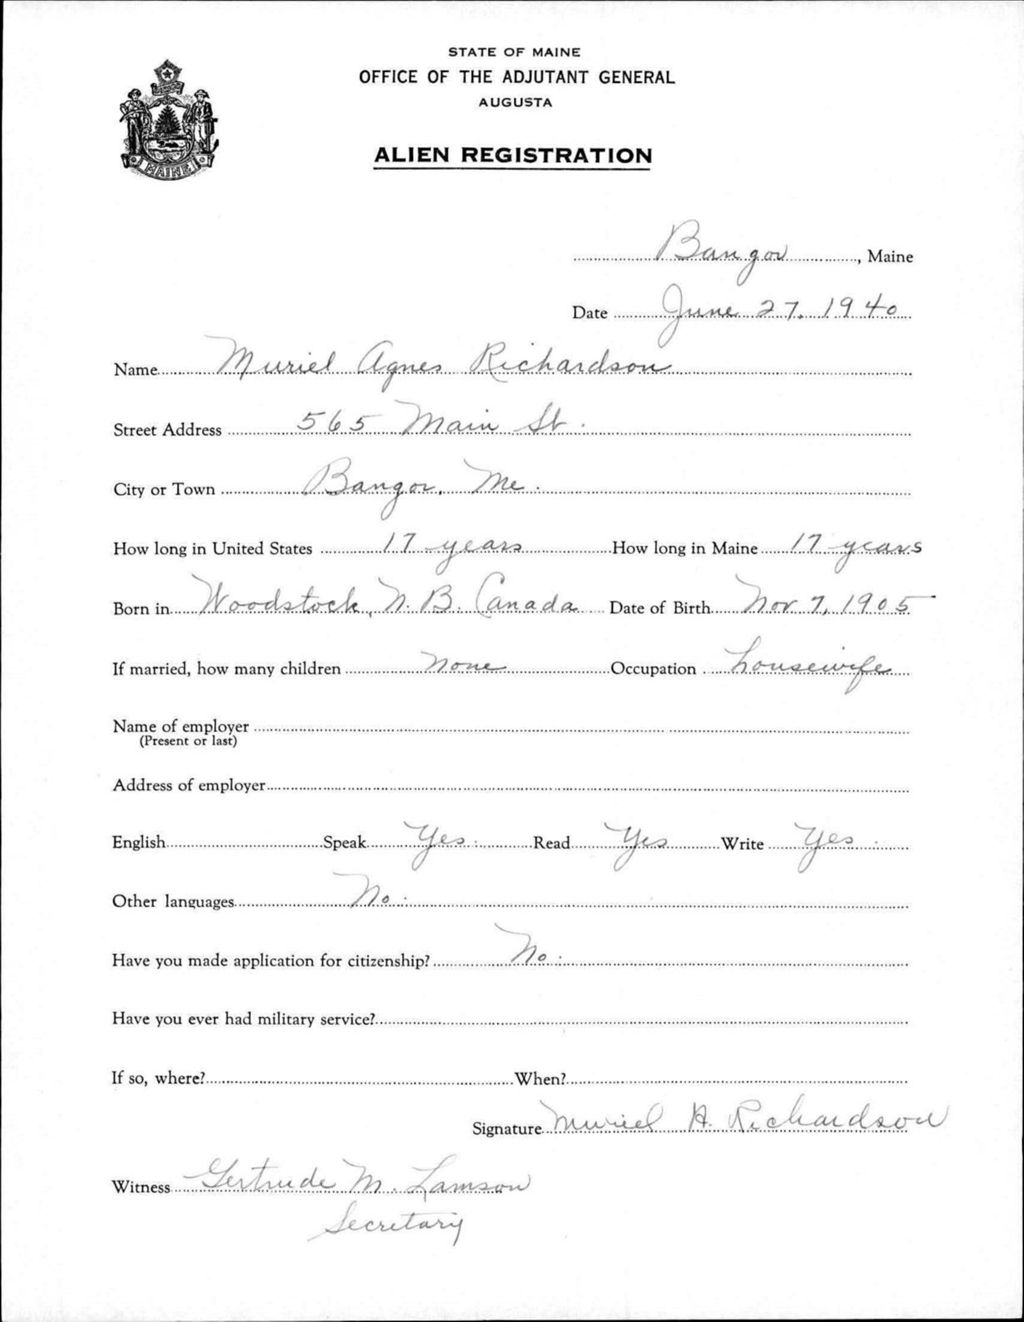 STATE OF MAINE
OFFICE OF THE ADJUTANT GENERAL
AUGUSTA
ALIEN REGISTRATION
MAINE
Bangor, Maine
Date June 27, 1940
Name Muriel Agnes Richardson
Street Address 565 Main St.
City or Town Bangor, Me.
How long in United States 17 years How long in Maine 17 years
Born in Woodstock, N. B. Canada Date of Birth Nov 7, 1905
If married, how many children None Occupation housewife
Name of employer
(Present or last)
Address of employer
English Speak Yes. Read Yes Write Yes.
Other languages No.
Have you made application for citizenship? No.
Have you ever had military service?
If so, where? When?
Signature Muriel A. Richardson
Witness Gertrude M. Lamson
Secretary